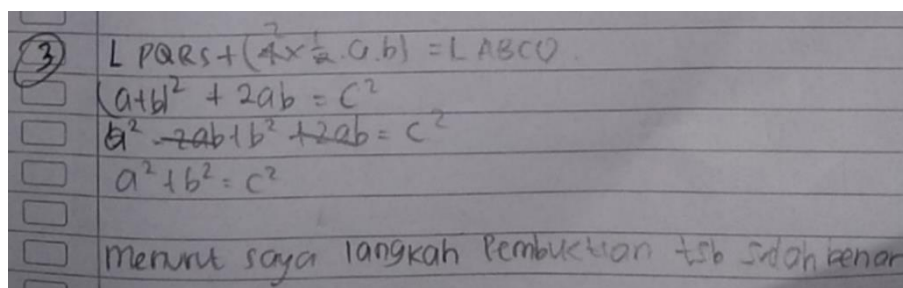 3 L PQRS + (4 2 × 1/2 . a . b) = L ABCD
(a+b)² + 2ab = c²
a² - 2ab + b² + 2ab = c²
a² + b² = c²
menurut saya langkah Pembuktian tsb sudah benar